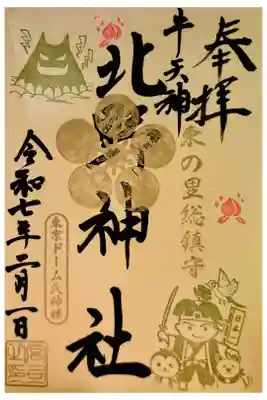 奉拝
牛天神
東の里総鎮守
北野神社
東京ドーム氏神様
令和七年二月一日
日本一